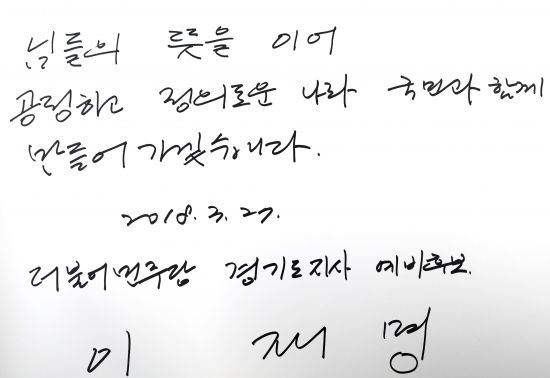 님들의 뜻을 이어
공정하고 정의로운 나라 국민과 함께
만들어 가겠습니다.
2018. 3. 27.
더불어민주당 경기도지사 예비후보
이 재 명